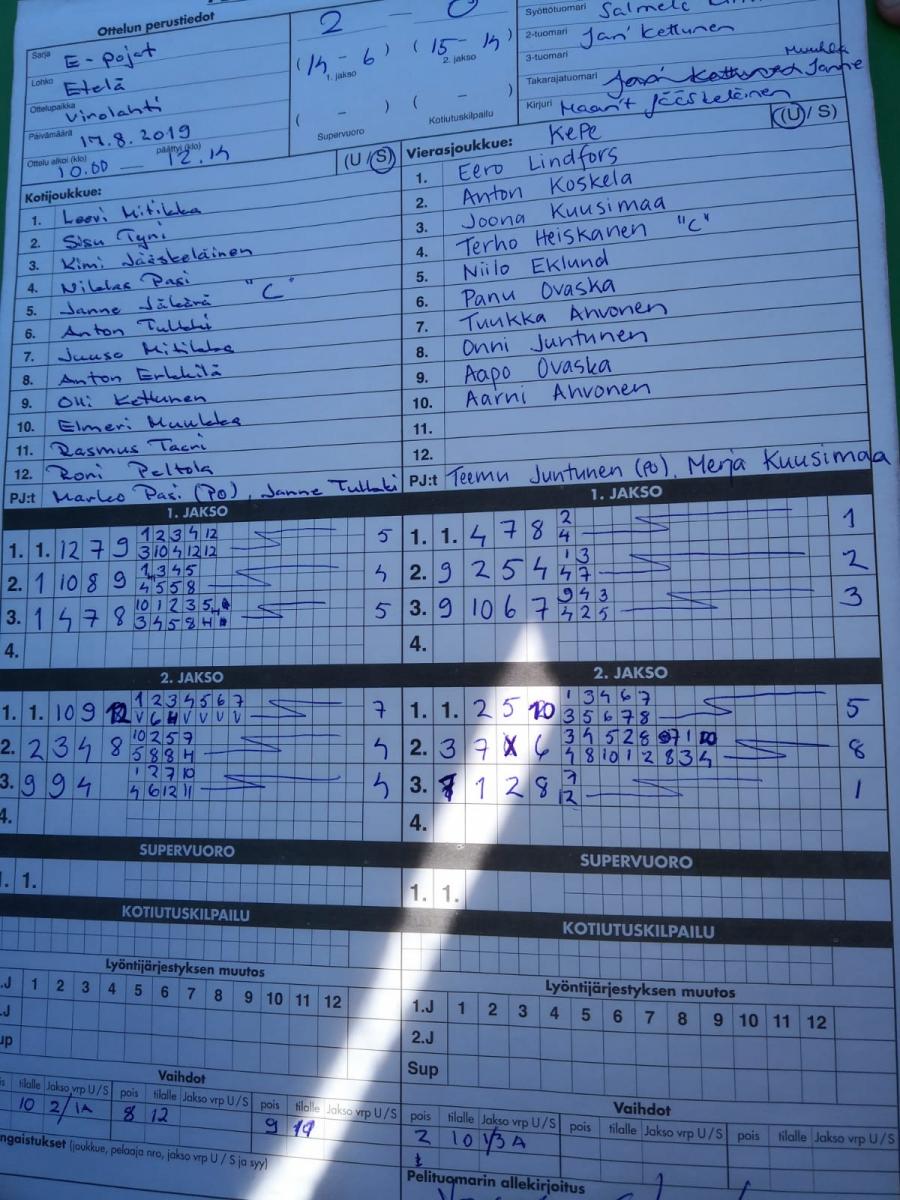 Ottelun perustiedot
Sarja E-Pojat
Lohko Etelä
Ottelupaikka Virolahti
Päivämäärä 17.8.2019
Ottelu alkoi (klo) päättyi (klo)
10.00 — 12.14
2 - 0
(14 - 6) (15 - 14)
1. jakso 2. jakso
( - ) ( - )
Supervuoro Kotiutuskilpailu
Syöttötuomari
2-tuomari Jari Kettunen
3-tuomari
Takarajatuomari Janne
Kirjuri Maarit Jääskeläinen
Kotijoukkue: (U/S)
1. Leevi Mitikka
2. Sisu Tyni
3. Kimi Jääskeläinen
4. Niklas Pasi
5. Janne Jäkärä "C"
6. Anton Tulkki
7. Juuso Mitikka
8. Anton Erkkilä
9. Olli Kettunen
10. Elmeri Muukka
11. Rasmus Taari
12. Roni Peltola
PJ:t Marko Pasi (PO), Janne Tulkki
Vierasjoukkue: KePe (U/S)
1. Eero Lindfors
2. Anton Koskela
3. Joona Kuusimaa
4. Terho Heiskanen "C"
5. Niilo Eklund
6. Panu Ovaska
7. Tuukka Ahvonen
8. Onni Juntunen
9. Aapo Ovaska
10. Aarni Ahvonen
11.
12.
PJ:t Teemu Juntunen (PO), Merja Kuusimaa
1. JAKSO
1. 1. 12 7 9 1 2 3 4 12 5
3 10 4 12 12
2. 1 10 8 9 1 3 4 5 4
4 5 5 8
3. 1 4 7 8 10 1 2 3 5 5
3 4 5 8 4
4.
1. JAKSO
1. 1. 4 7 8 2 1
4
2. 9 2 5 4 1 3 2
4 7
3. 9 10 6 7 9 4 3 3
4 2 5
4.
2. JAKSO
1. 1. 10 9 12 1 2 3 4 5 6 7 7
V 6 4 V V V V
2. 2 3 4 8 10 2 5 7 4
5 8 8 4
3. 9 9 4 1 2 7 10 4
4 6 12 11
4.
2. JAKSO
1. 1. 2 5 10 1 3 4 6 7 5
3 5 6 7 8
2. 3 7 6 3 4 5 2 8 9 7 1 10 8
4 8 10 1 2 8 3 4
3. 7 1 2 8 7 1
12
4.
SUPERVUORO
1. 1.
SUPERVUORO
1. 1.
KOTIUTUSKILPAILU
KOTIUTUSKILPAILU
Lyöntijärjestyksen muutos
.J 1 2 3 4 5 6 7 8 9 10 11 12
.J
up
Lyöntijärjestyksen muutos
1.J 1 2 3 4 5 6 7 8 9 10 11 12
2.J
Sup
Vaihdot
is tilalle Jakso vrp U/S pois tilalle Jakso vrp U/S pois tilalle Jakso vrp U/S
10 2/1A 8 12 9 11
Vaihdot
pois tilalle Jakso vrp U/S pois tilalle Jakso vrp U/S pois tilalle Jakso vrp U/S
2 10 1/3 A
ngaistukset (joukkue, pelaaja nro, jakso vrp U / S ja syy)
Pelituomarin allekirjoitus